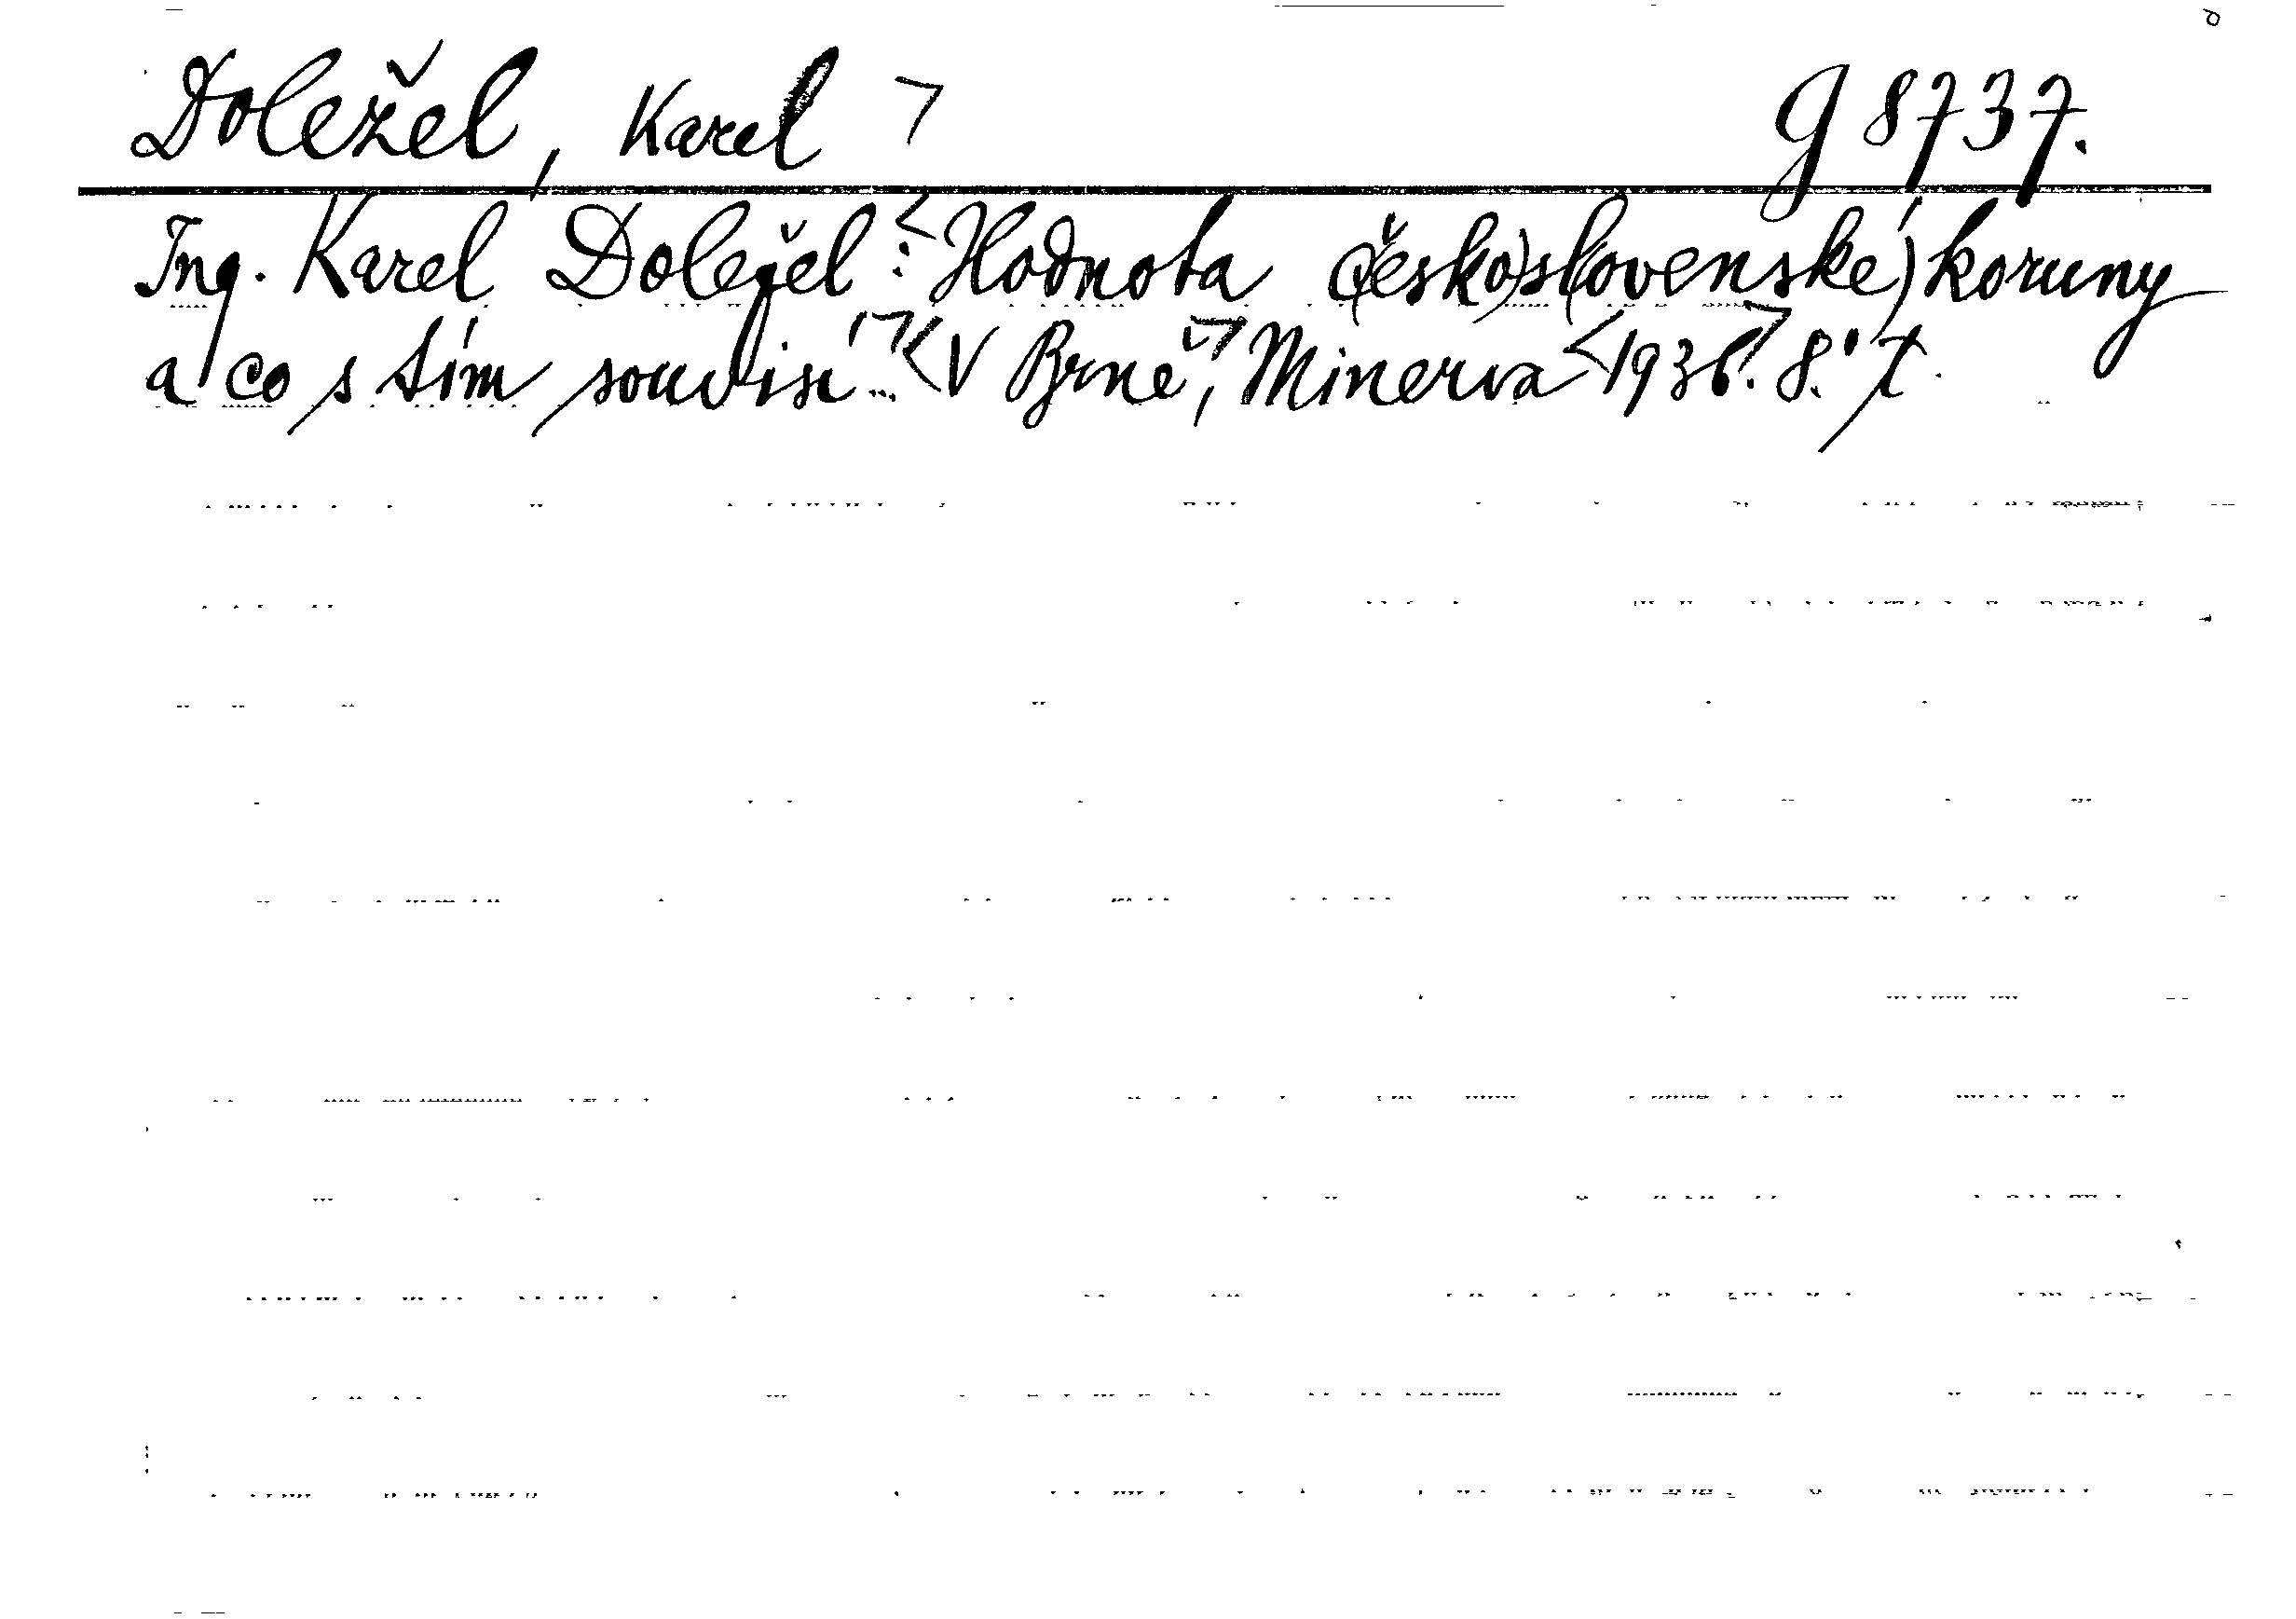 Doležel, Karel ㄱ g 8737.
Ing. Karel Doležel: <Hodnota č(esko)sl(ovenské) koruny
a co s tím souvisí...ㄱ <V Brně,ㄱ Minerva <1936.ㄱ 8.° t.